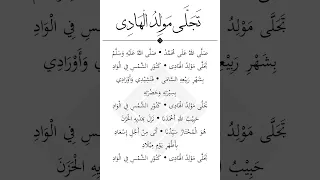 تَجَلَّى مَوْلِدُ الْهَادِى
صَلَّى اللهُ عَلَى مُحَمَّدْ • صَلَّى اللهُ عَلَيْهِ وَسَلَّمْ
تَجَلَّى مَوْلِدُ الْهَادِى • كَنُوْرِ الشَّمْسِ فِي الْوَادِ
بِشَهْرِ رَبِيْعِهِ السَّامِى • فَنَشِيْدِي وَأَوْرَادِي
بِسِيْرَتِهِ وَحَضْرَتِهِ
تَجَلَّى مَوْلِدُ الْهَادِى • كَنُوْرِ الشَّمْسِ فِي الْوَادِ
حَبِيْبُ اللهِ أَحْمَدُنَا • نَزَلَ بِهَدْيِهِ الْحَزَنَ
هُوَ الْمُخْتَارُ سَيِّدُنَا • أَتَى مِنْ أَجْلِ إِسْعَادِ
بِأَطْهَرِ يَوْمِ مِيْلَادِ
تَجَلَّى مَوْلِدُ الْهَادِى • كَنُوْرِ الشَّمْسِ فِي الْوَادِ